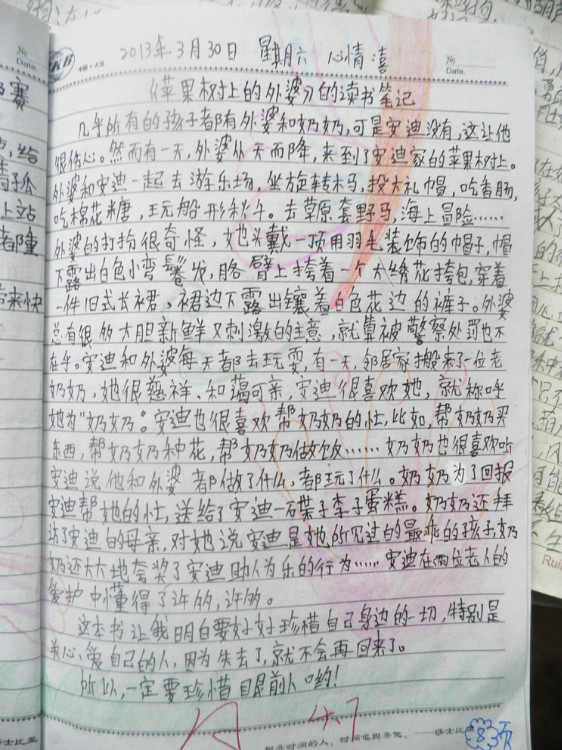 No.
Date.
2013年3月30日 星期六 心情:喜
No.
Date.
《苹果树上的外婆》的读书笔记
几乎所有的孩子都有外婆和奶奶,可是安迪没有,这让他
很伤心。然而有一天,外婆从天而降,来到了安迪家的苹果树上。
外婆和安迪一起去游乐场,坐旋转木马,投大礼帽,吃香肠,
吃棉花糖,玩船形秋千。去草原套野马,海上冒险……
外婆的打扮很奇怪,她头戴一顶用羽毛装饰的帽子,帽
下露出白色小弯鬈发,胳臂上挎着一个大绣花挎包,穿着
一件旧式长裙。裙边下露出镶着白色花边的裤子。外婆
总有很多大胆新鲜又刺激的主意,就算被警察处罚也不
在乎。安迪和外婆每天都去玩耍,有一天,邻居家搬来了一位老
奶奶,她很慈祥、和蔼可亲,安迪很喜欢她,就称呼
她为“奶奶”。安迪也很喜欢帮奶奶的忙,比如,帮奶奶买
东西,帮奶奶种花,帮奶奶做饭……奶奶也很喜欢听
安迪说他和外婆都做了什么,都玩了什么。奶奶为了回报
安迪帮她的忙,送给了安迪一碟子李子蛋糕。奶奶还拜
访了安迪的母亲,对她说安迪是她所见过的最乖的孩子,奶
奶还大大地夸奖了安迪助人为乐的行为……安迪在两位老人的
爱护中懂得了许多,许多。
这本书让我明白要好好珍惜自己身边的一切,特别是
关心、爱自己的人,因为失去了,就不会再回来了。
所以,一定要珍惜眼前人哟!
83页